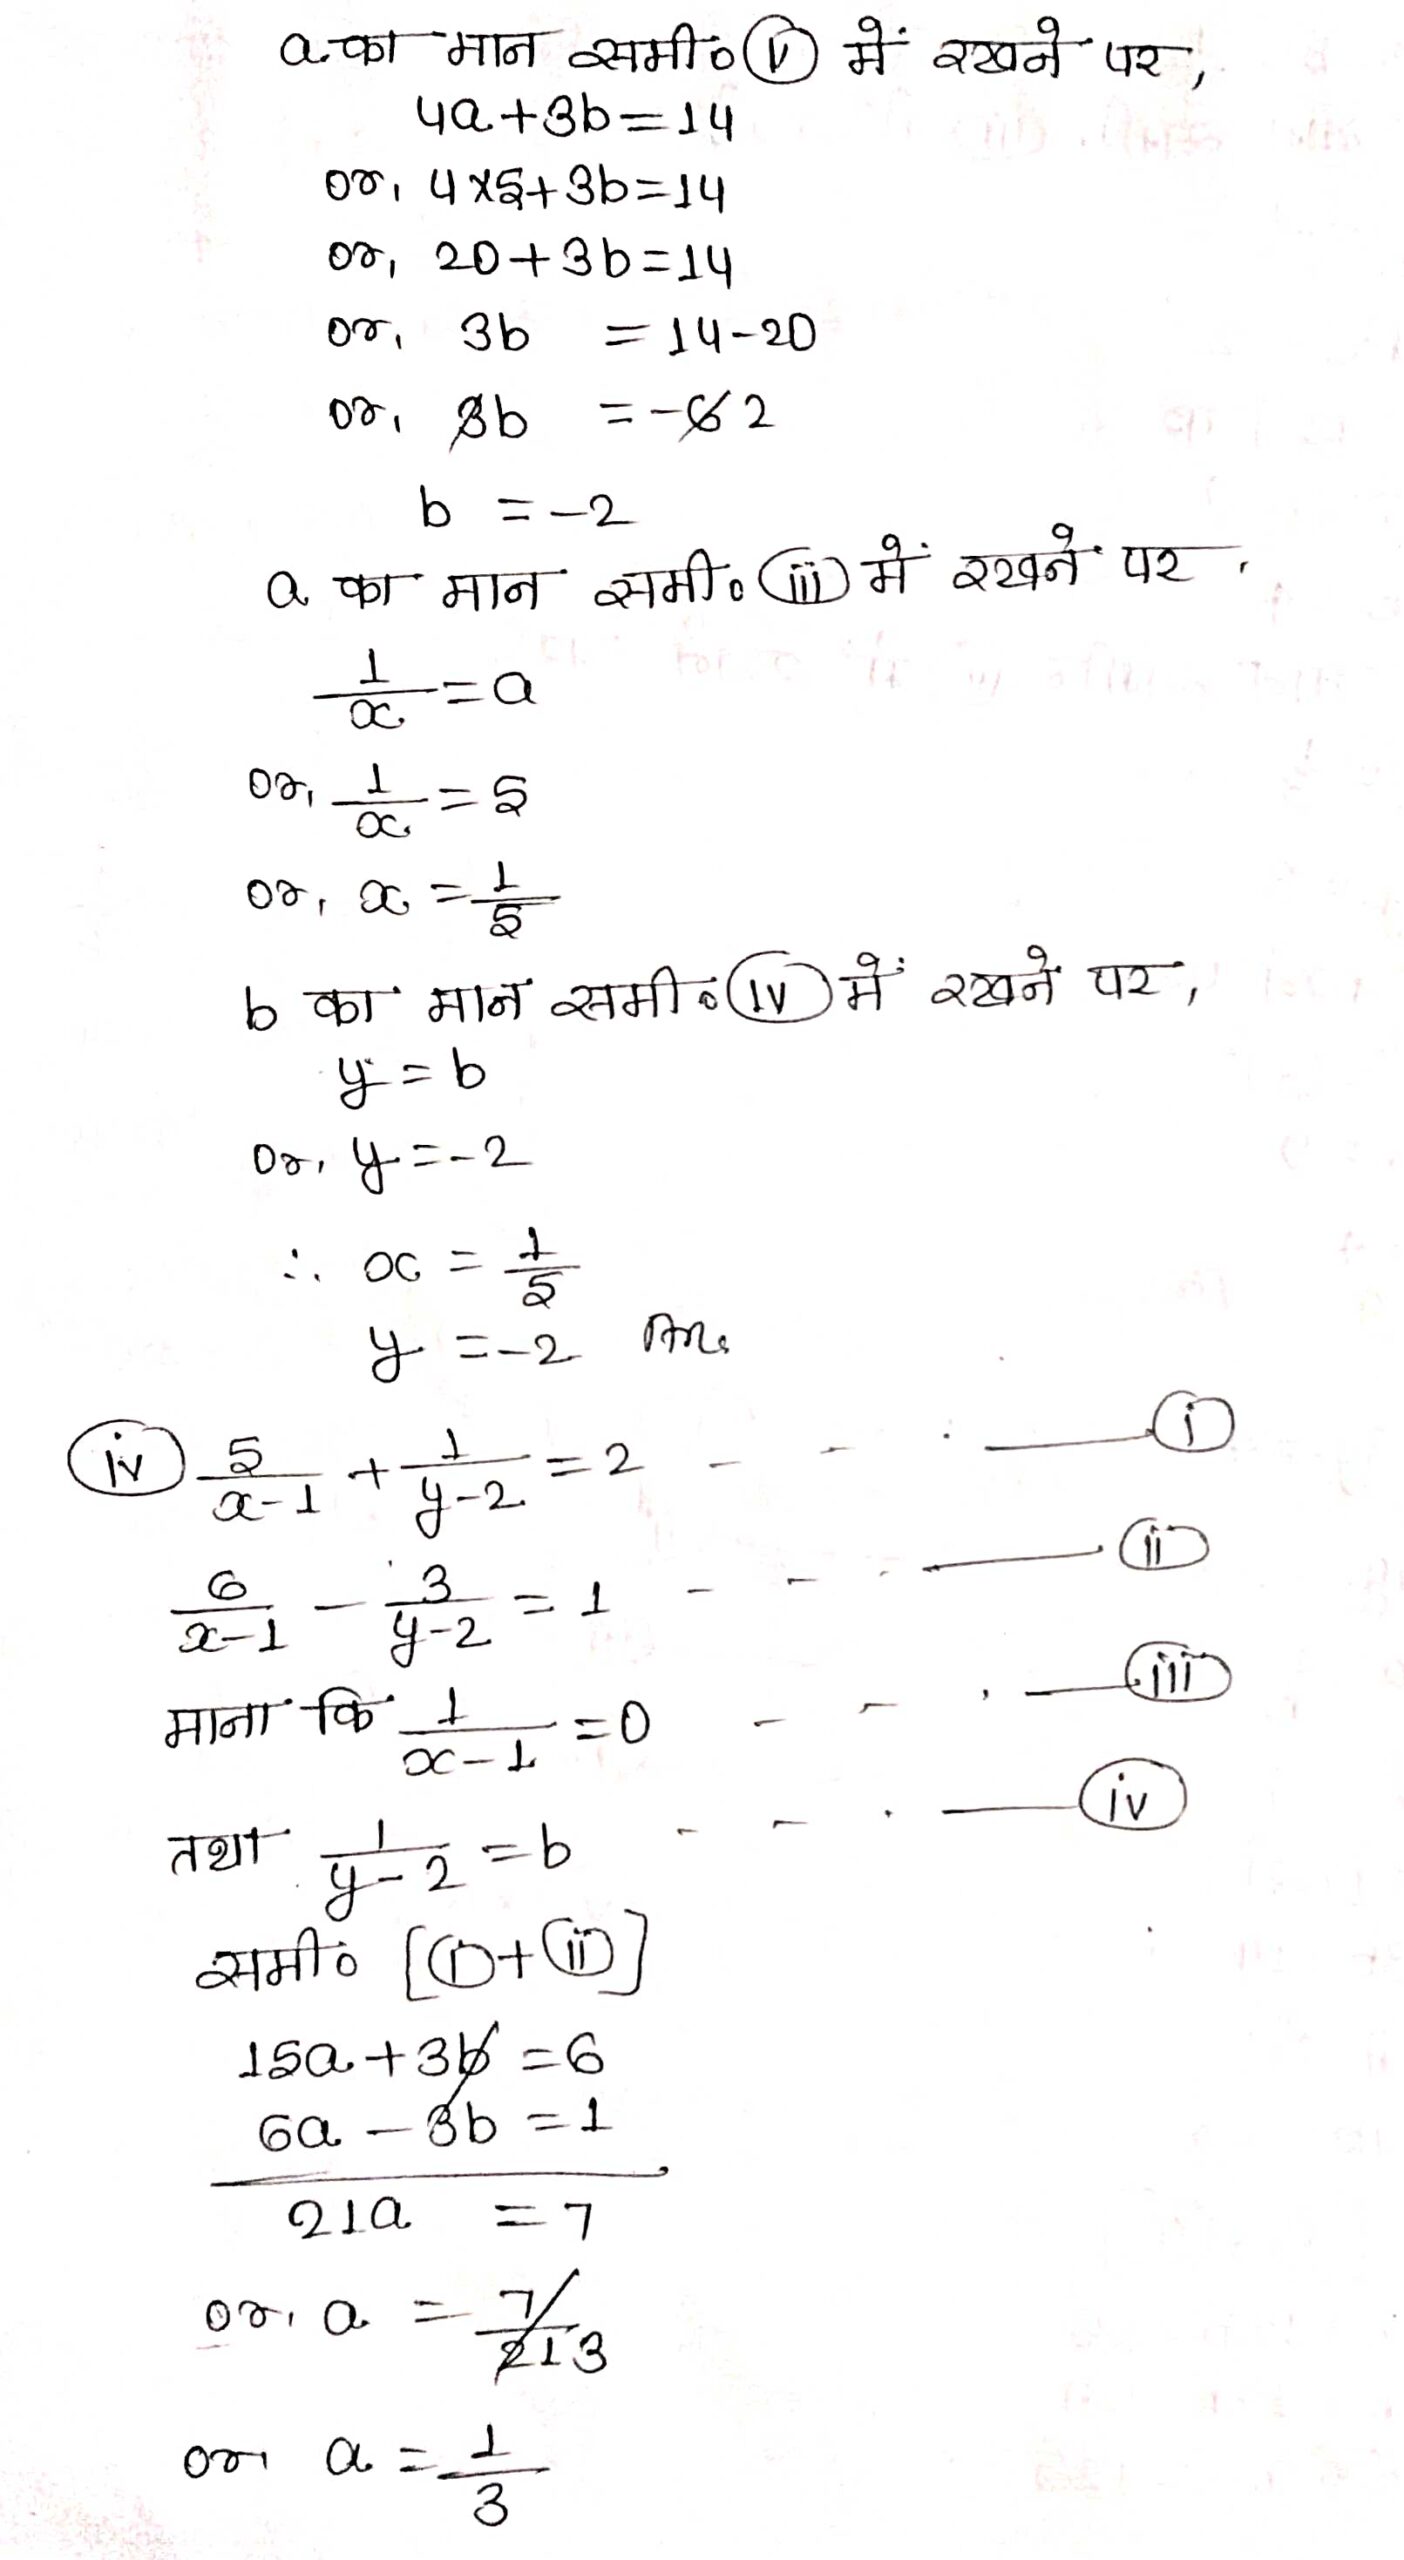 a का मान समी० (v) में रखने पर,
4a+3b=14
or, 4×5+3b=14
or, 20+3b=14
or, 3b = 14-20
or, 3b = -6 2
b = -2
a का मान समी० (iii) में रखने पर,
1/x = a
or, 1/x = 5
or, x = 1/5
b का मान समी० (iv) में रखने पर,
y = b
or, y = -2
∴ x = 1/5
y = -2 Ans
(iv) 5/x-1 + 1/y-2 = 2 - - . — (i)
6/x-1 - 3/y-2 = 1 - - . — (ii)
माना कि 1/x-1 = 0 - - . — (iii)
तथा 1/y-2 = b - - . — (iv)
समी० [(i)+(ii)]
15a+3b = 6
6a-3b = 1
21a = 7
or, a = 7/21 3
or, a = 1/3